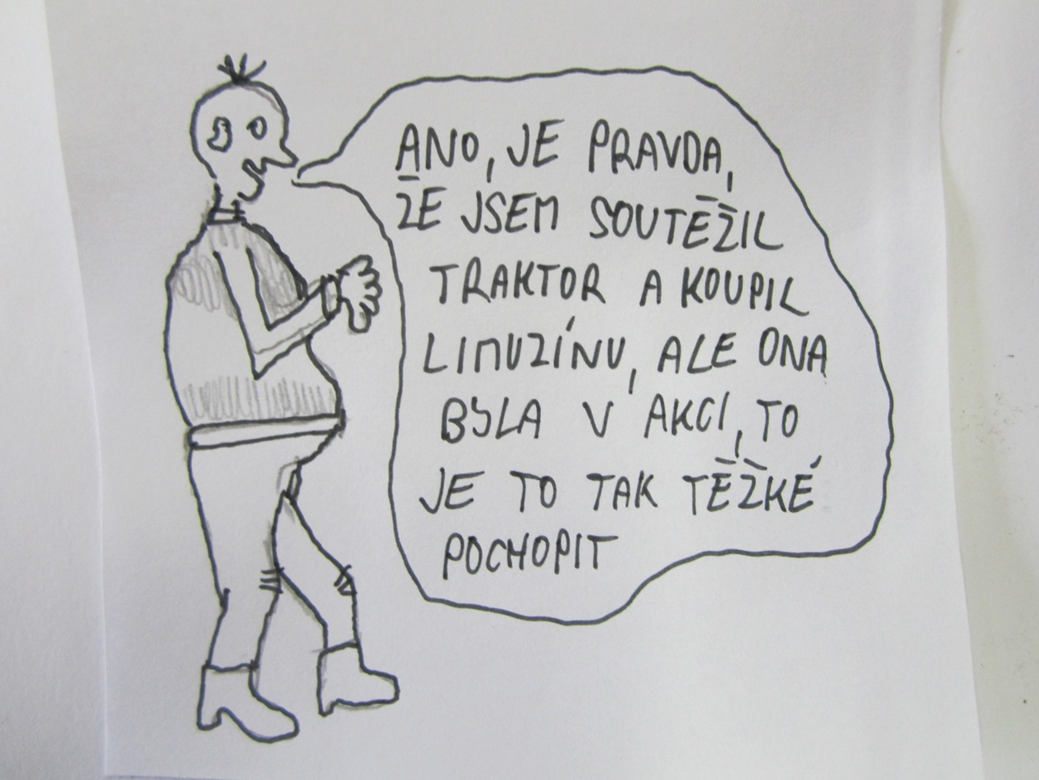 ANO, JE PRAVDA,
ŽE JSEM SOUTĚŽIL
TRAKTOR A KOUPIL
LIMUZÍNU, ALE ONA
BYLA V AKCI, TO
JE TO TAK TĚŽKÉ
POCHOPIT